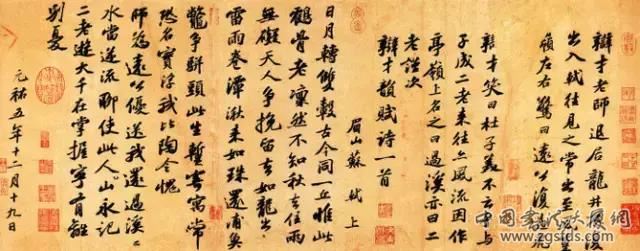 辯才老師退居龍井
出入軾往見之常出至風
嶺左右驚曰遠公復過
辯才笑曰杜子美不云乎
子成二老來往亦風流因作
亭嶺上名之曰過溪亦曰二
老謹次
辯才韻賦詩一首
眉山蘇軾上
日月轉雙轂古今同一丘惟此
鶴骨老凜然不知秋去住兩
無礙天人爭挽留去如龍出山
雷雨卷潭湫來如珠還浦魚
鱉爭駢頭此生暫寄寓常
恐名實浮我比陶令愧
師為遠公優送我還過溪溪
水當逆流聊使此山人永記
二老遊大千在掌握寧有離
別憂
元祐五年十二月十九日
中國書法大授網
www.zgsfds.com